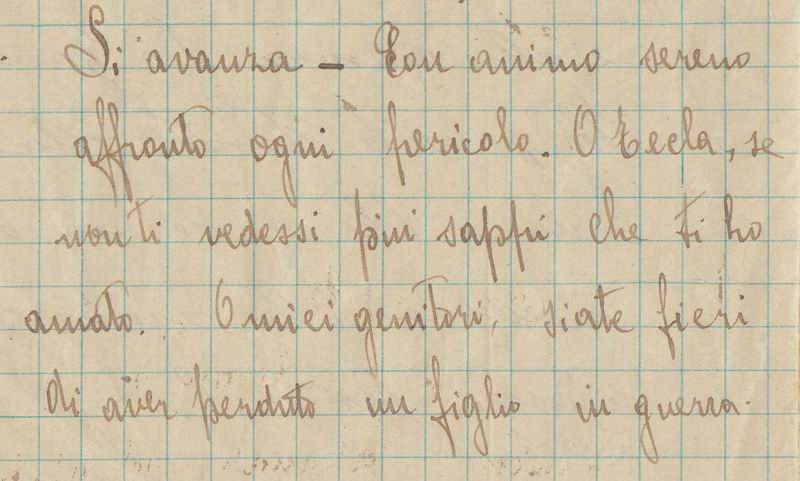 Si avanza - Con animo sereno
affronto ogni pericolo. O Tecla, se
non ti vedessi più sappi che ti ho
amato. O miei genitori, siate fieri
di aver perduto un figlio in guerra.